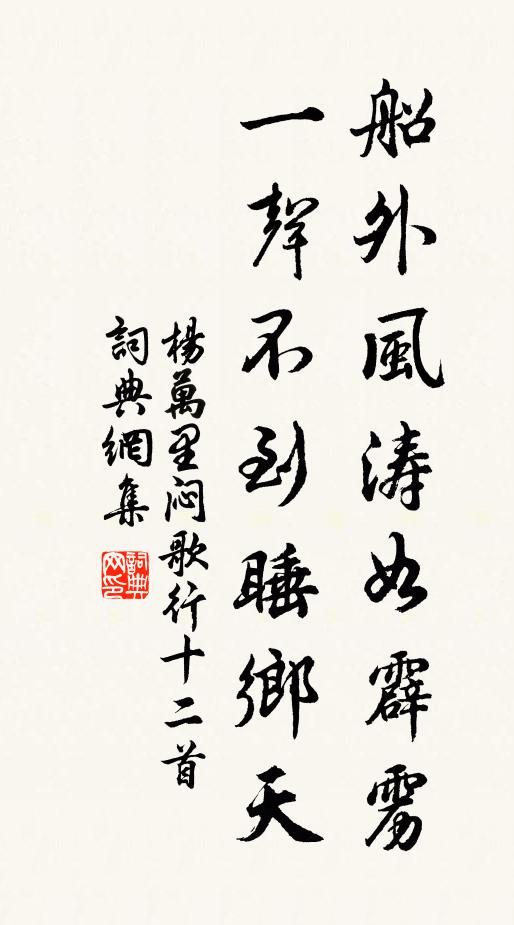 船外風濤如霹雳
一聲不到睡鄉天
楊萬里闷歌行十二首
詞典網集
詞典網印